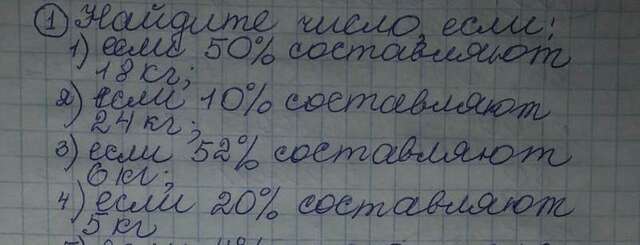 ① Найдите число, если:
1) если 50% составляют
18 кг;
2) если 10% составляют
24 кг;
3) если 52% составляют
6 кг;
4) если 20% составляют
5 кг